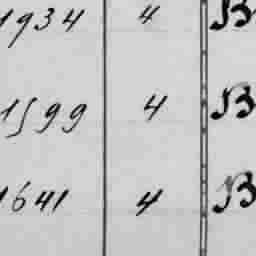 1934 4 B
1599 4 B
1641 4 B